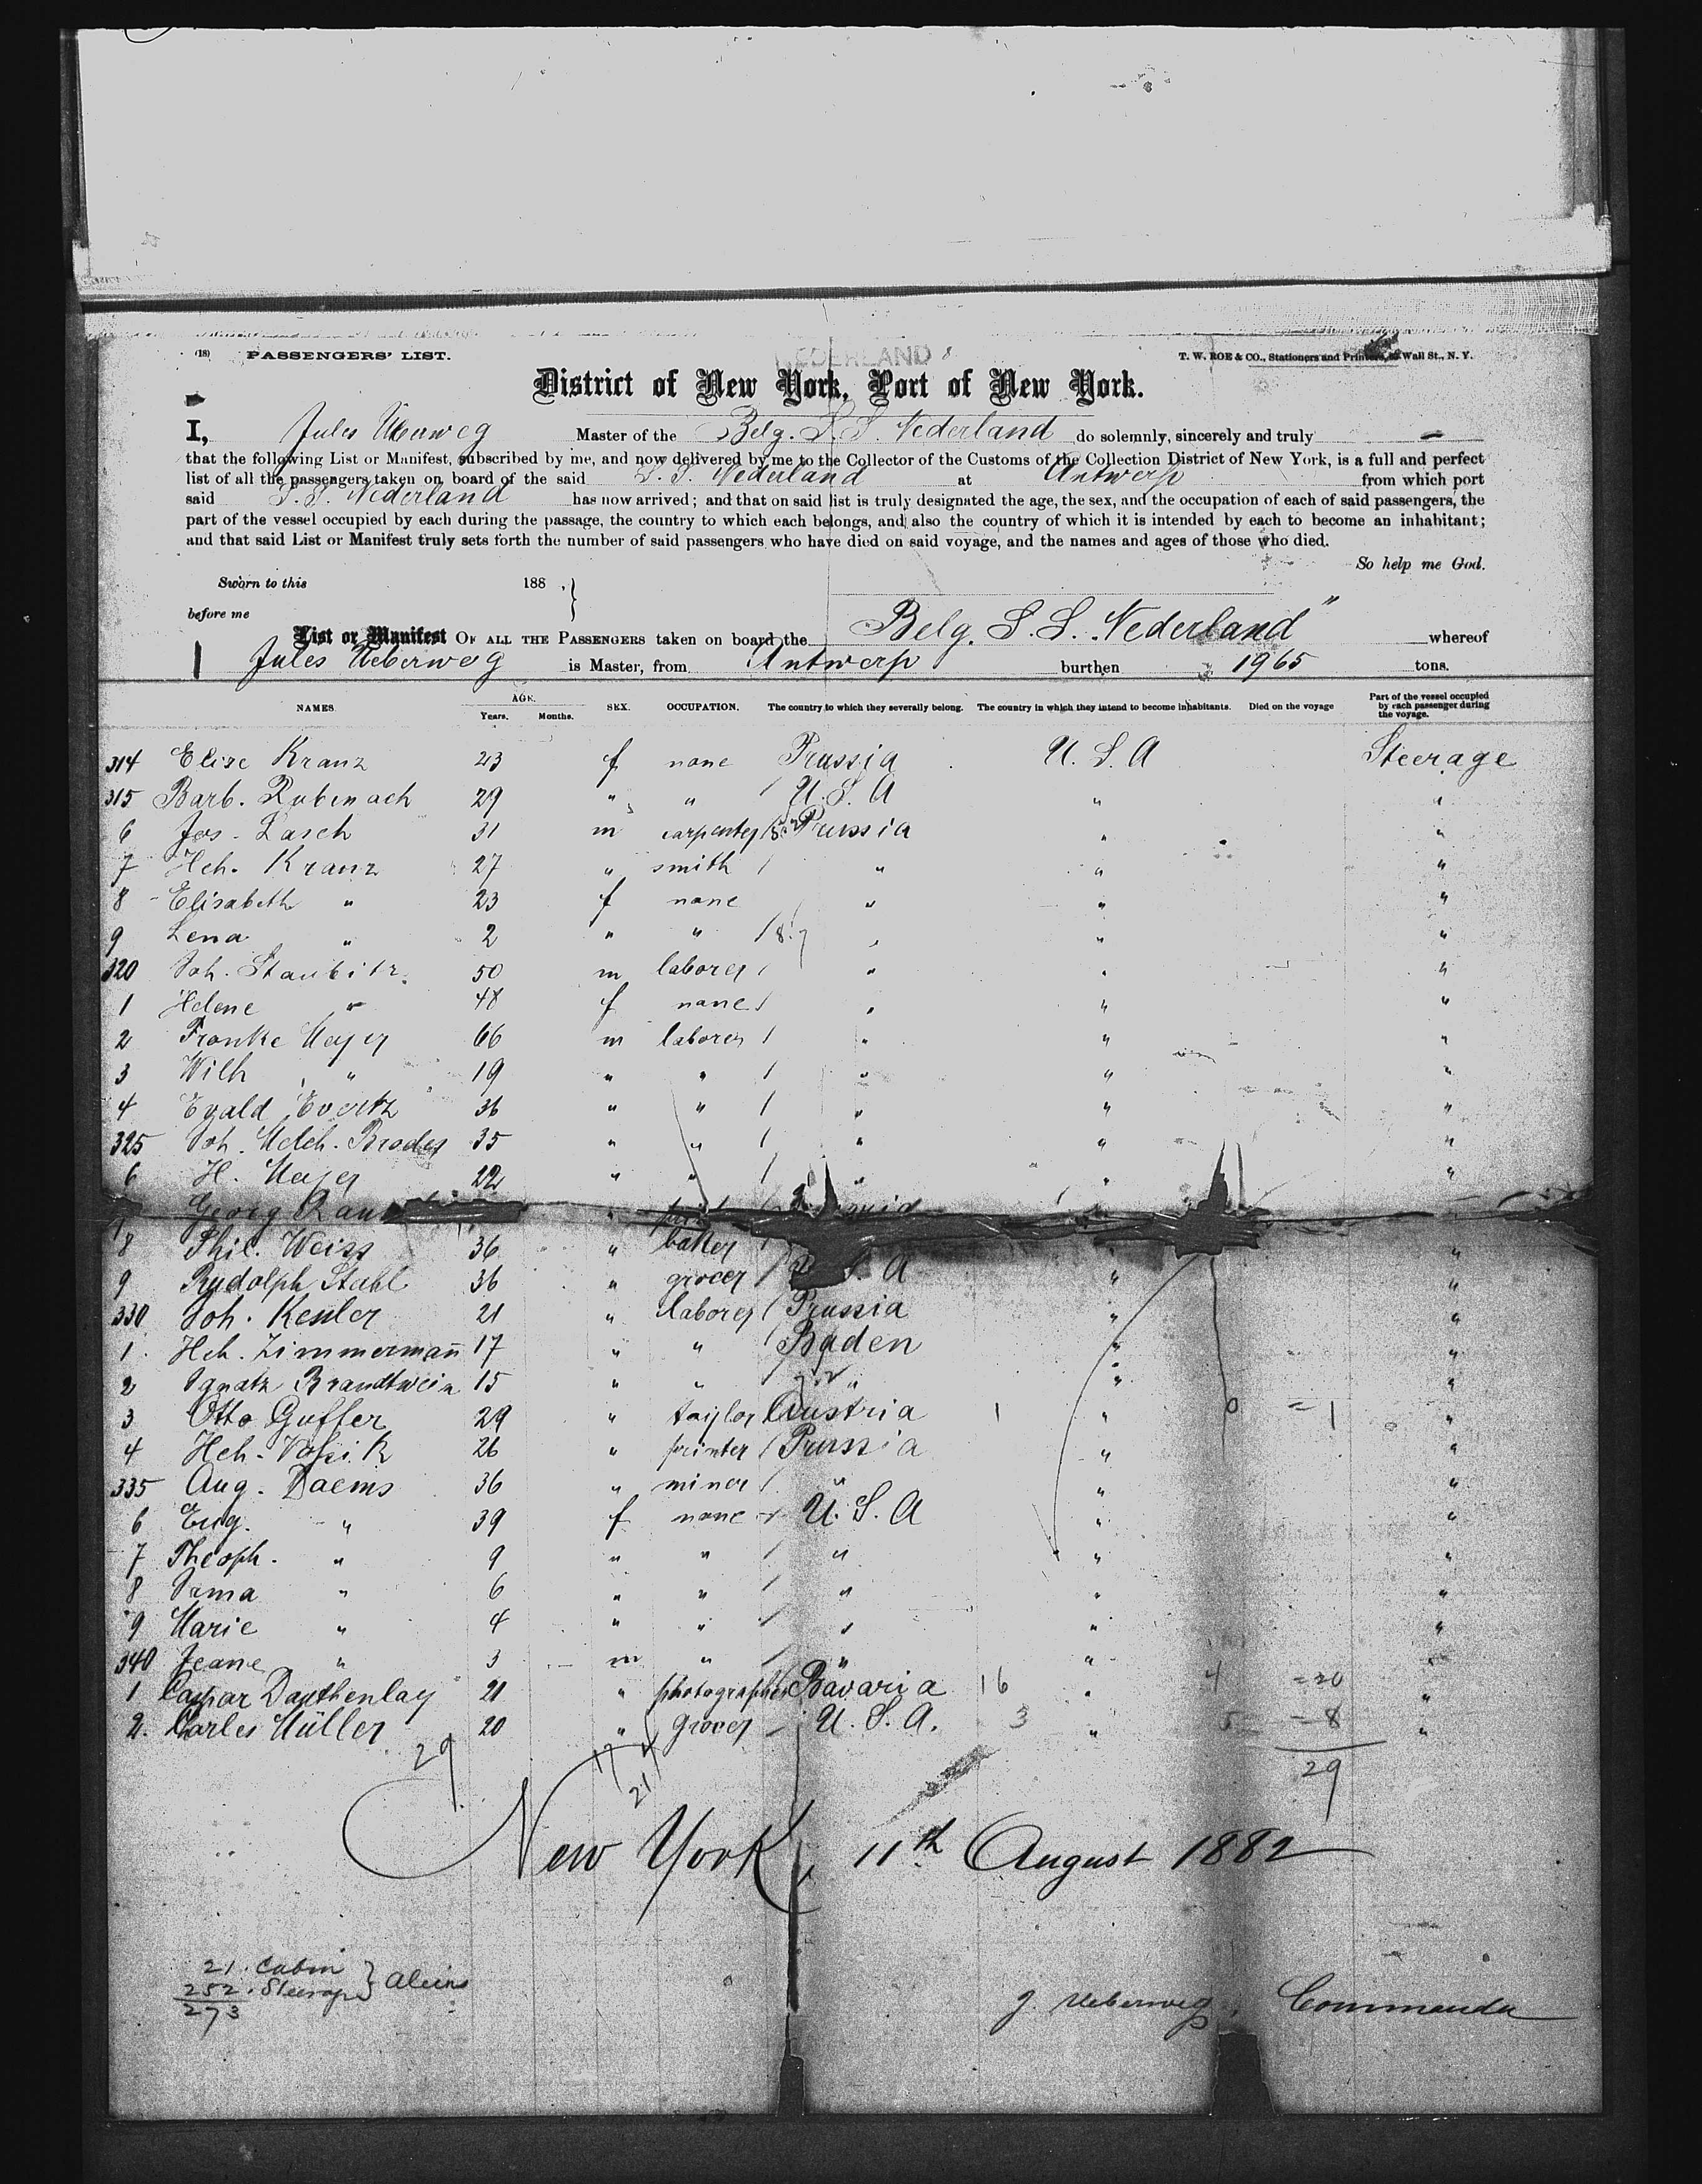 NEDERLAND
(18) PASSENGERS' LIST. T. W. ROE & CO., Stationers and Printers, Wall St., N. Y.
District of New York, Port of New York.
I, Jules Ueberweg Master of the Belg. S.S. Nederland do solemnly, sincerely and truly
that the following List or Manifest, subscribed by me, and now delivered by me to the Collector of the Customs of the Collection District of New York, is a full and perfect
list of all the passengers taken on board of the said S.S. Nederland at Antwerp from which port
said S.S. Nederland has now arrived; and that on said list is truly designated the age, the sex, and the occupation of each of said passengers, the
part of the vessel occupied by each during the passage, the country to which each belongs, and also the country of which it is intended by each to become an inhabitant;
and that said List or Manifest truly sets forth the number of said passengers who have died on said voyage, and the names and ages of those who died.
So help me God.
Sworn to this 188 . }
before me
List or Manifest OF ALL THE PASSENGERS taken on board the Belg. S.S. Nederland" whereof
Jules Ueberweg is Master, from Antwerp burthen 1965 tons.
NAMES AGE. Years. Months. SEX. OCCUPATION. The country to which they severally belong. The country in which they intend to become inhabitants. Died on the voyage Part of the vessel occupied by each passenger during the voyage.
314 Elise Kranz 23 f none Prussia U.S.A Steerage
315 Barb. Rubenach 29 " " U.S.A " "
6 Jos. Lasch 31 m carpenter Prussia " "
7 Hch. Kranz 27 " smith " " "
8 Elisabeth " 23 f none " " "
9 Lena " 2 " " " " "
320 Joh. Staubitz 50 m laborer " " "
1 Helene " 48 f none " " "
2 Franke Meyer 66 m laborer " " "
3 Wilh " 19 " " " " "
4 Evald Evertz 36 " " " " "
325 Joh. Melch. 35 " " " " "
6 H. Meyer 22 " " " " "
Georg "
8 Phil. Weiss 36 " baker " "
9 Rudolph Stahl 36 " grocer A " "
330 Joh. Kesler 21 " laborer Prussia " "
1 Hch. Zimmermañ 17 " " Baden " "
2 Ignatz Brandtwein 15 " " " " "
3 Otto Guffer 29 " taylor Austria 1 " 0 = 1 "
4 Hch. 26 " printer Prussia " "
335 Aug. Daems 36 " miner " " "
6 Eug. " 39 f none U.S.A " "
7 Theoph. " 9 " " " " "
8 Irma " 6 " " " " "
9 Marie " 4 " " " " "
340 Jeane " 3 m " " " "
1 Caspar Dauthenlay 21 " photographer Bavaria 16 " 4 = 20 "
2. Carles Müller 20 " grocer U.S.A. 3 " 5 = 8 "
29 17 4 29
21
New York, 11th August 1882
21. Cabin
252. Steerage } Aliens
273
J. Ueberweg, Commander